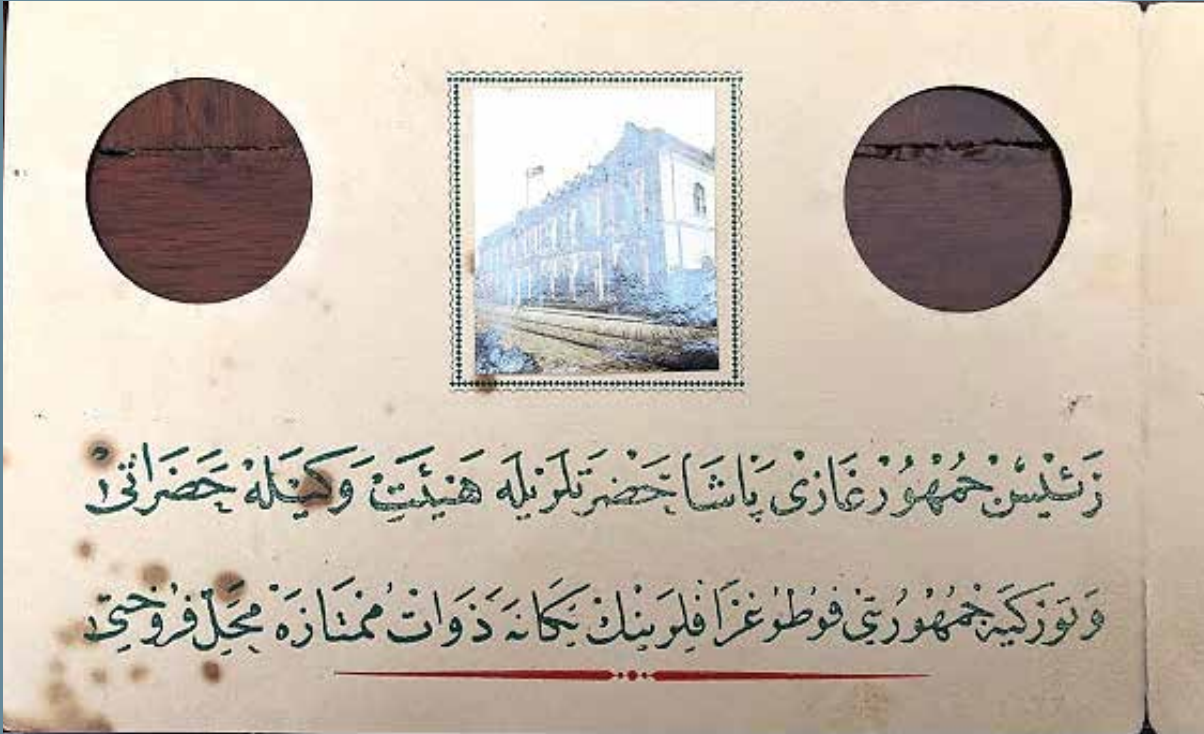 رئيس جمهور غازى پاشا حضرتلريله هيئت وكيله حضراتى
وتوركيه جمهوريتى فوطوغرافلرينك يكانه ذوات ممتازه محل فروختى